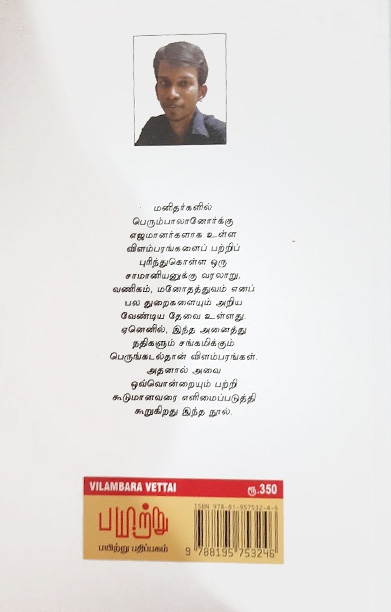 மனிதர்களில்
பெரும்பாலானோர்க்கு
எஜமானர்களாக உள்ள
விளம்பரங்களைப் பற்றிப்
புரிந்துகொள்ள ஒரு
சாமானியனுக்கு வரலாறு,
வணிகம், மனோதத்துவம் எனப்
பல துறைகளையும் அறிய
வேண்டிய தேவை உள்ளது.
ஏனெனில், இந்த அனைத்து
நதிகளும் சங்கமிக்கும்
பெருங்கடல்தான் விளம்பரங்கள்.
அதனால் அவை
ஒவ்வொன்றையும் பற்றி
கூடுமானவரை எளிமைப்படுத்தி
கூறுகிறது இந்த நூல்.
VILAMBARA VETTAI ரூ.350
பயிற்று
பயிற்று பதிப்பகம்
ISBN 978-81-957532-4-6
9 788195 753246